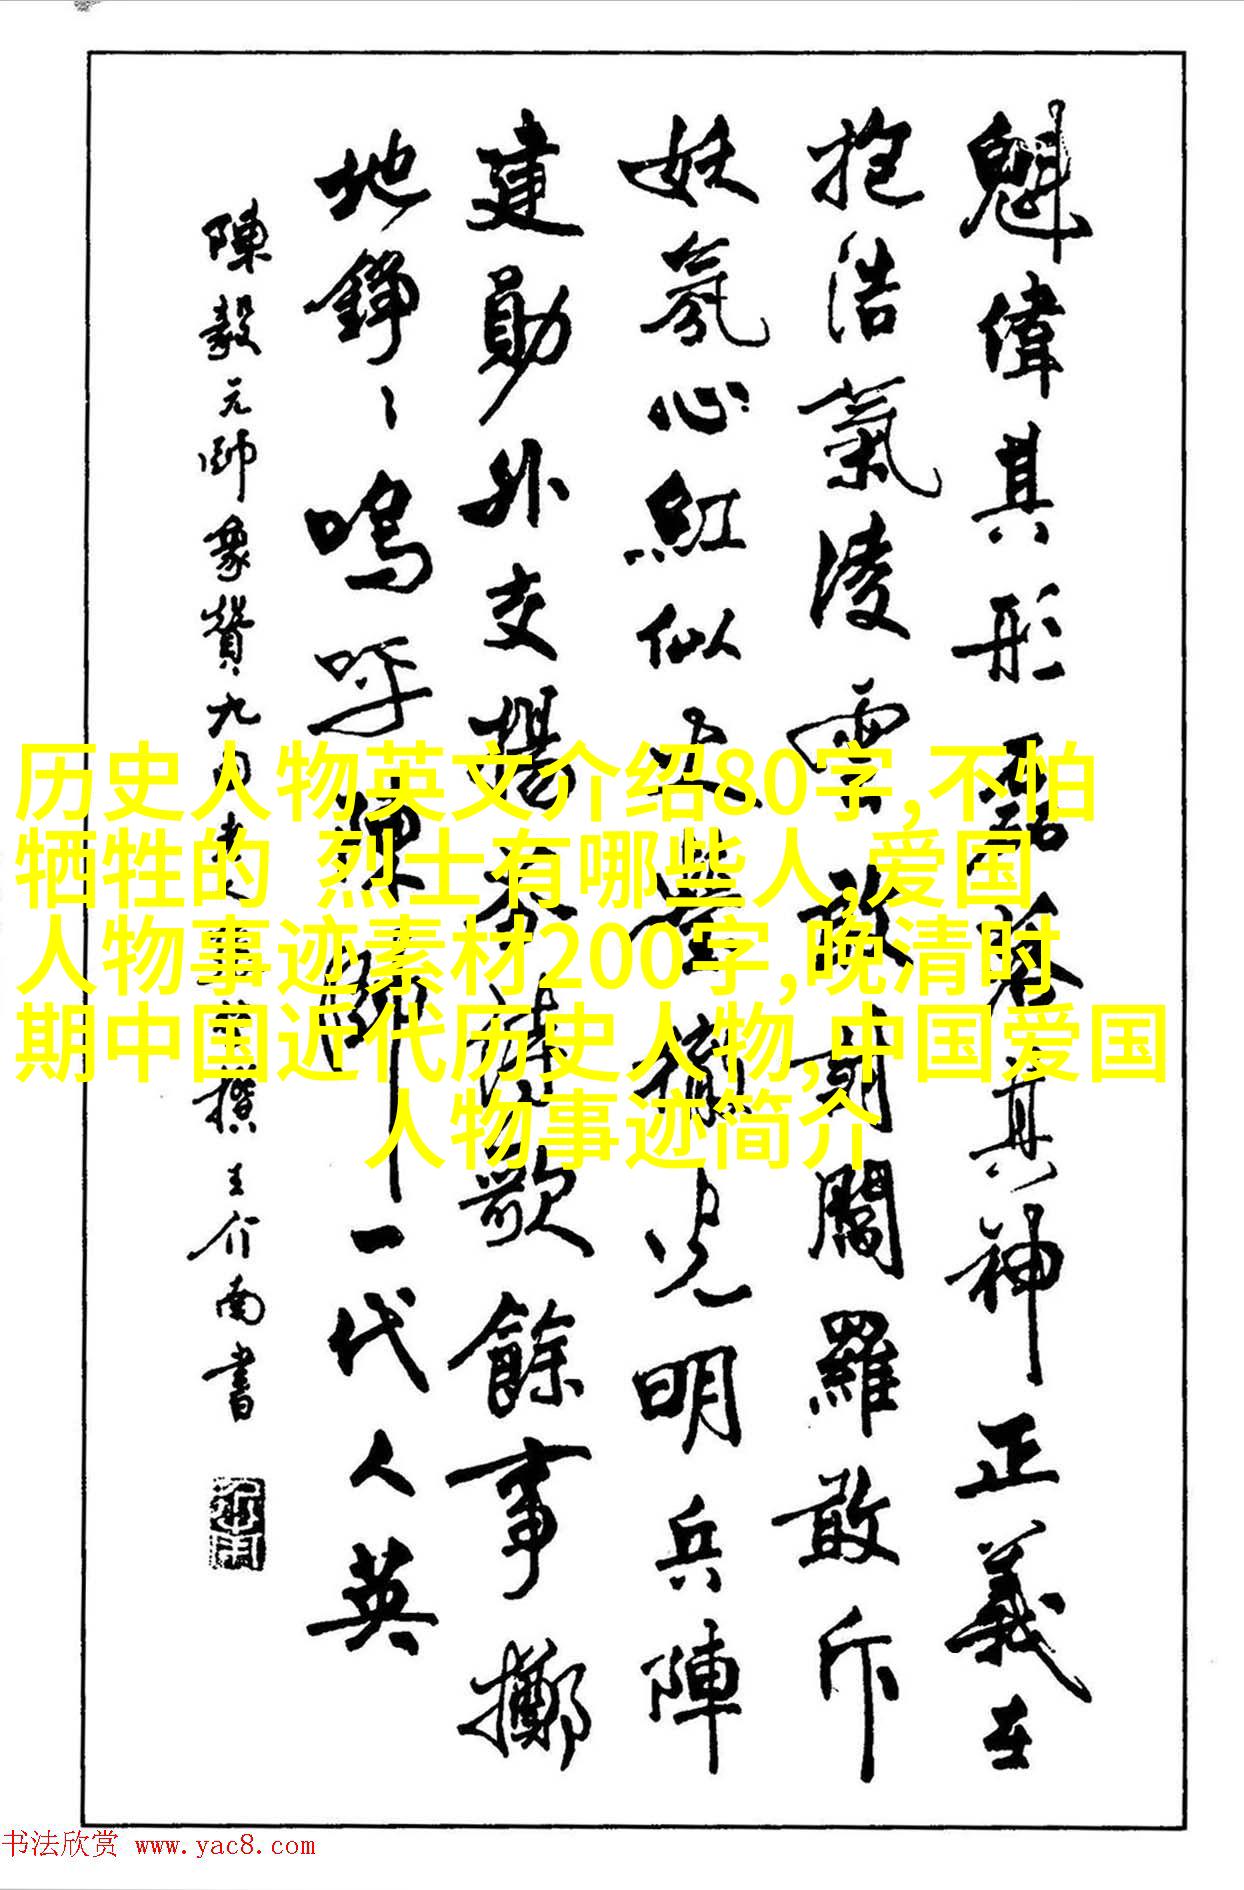 魁偉其形磊落其神正義在
抱浩氣淩雲敢刺閻羅敢斥
妖氛心紅似火瑩徹光明兵陣
建勛外交揚芬詩歌餘事擲
地錚〻嗚呼陳師一代人英
陳毅元帥象贊九旬老
撰王介南書
历史人物英文介绍80字,不怕
牺牲的 烈士有哪些人,爱国
人物事迹素材200字,晚清时
期中国近代历史人物,中国爱国
人物事迹简介
书法欣赏 www.yac8.com